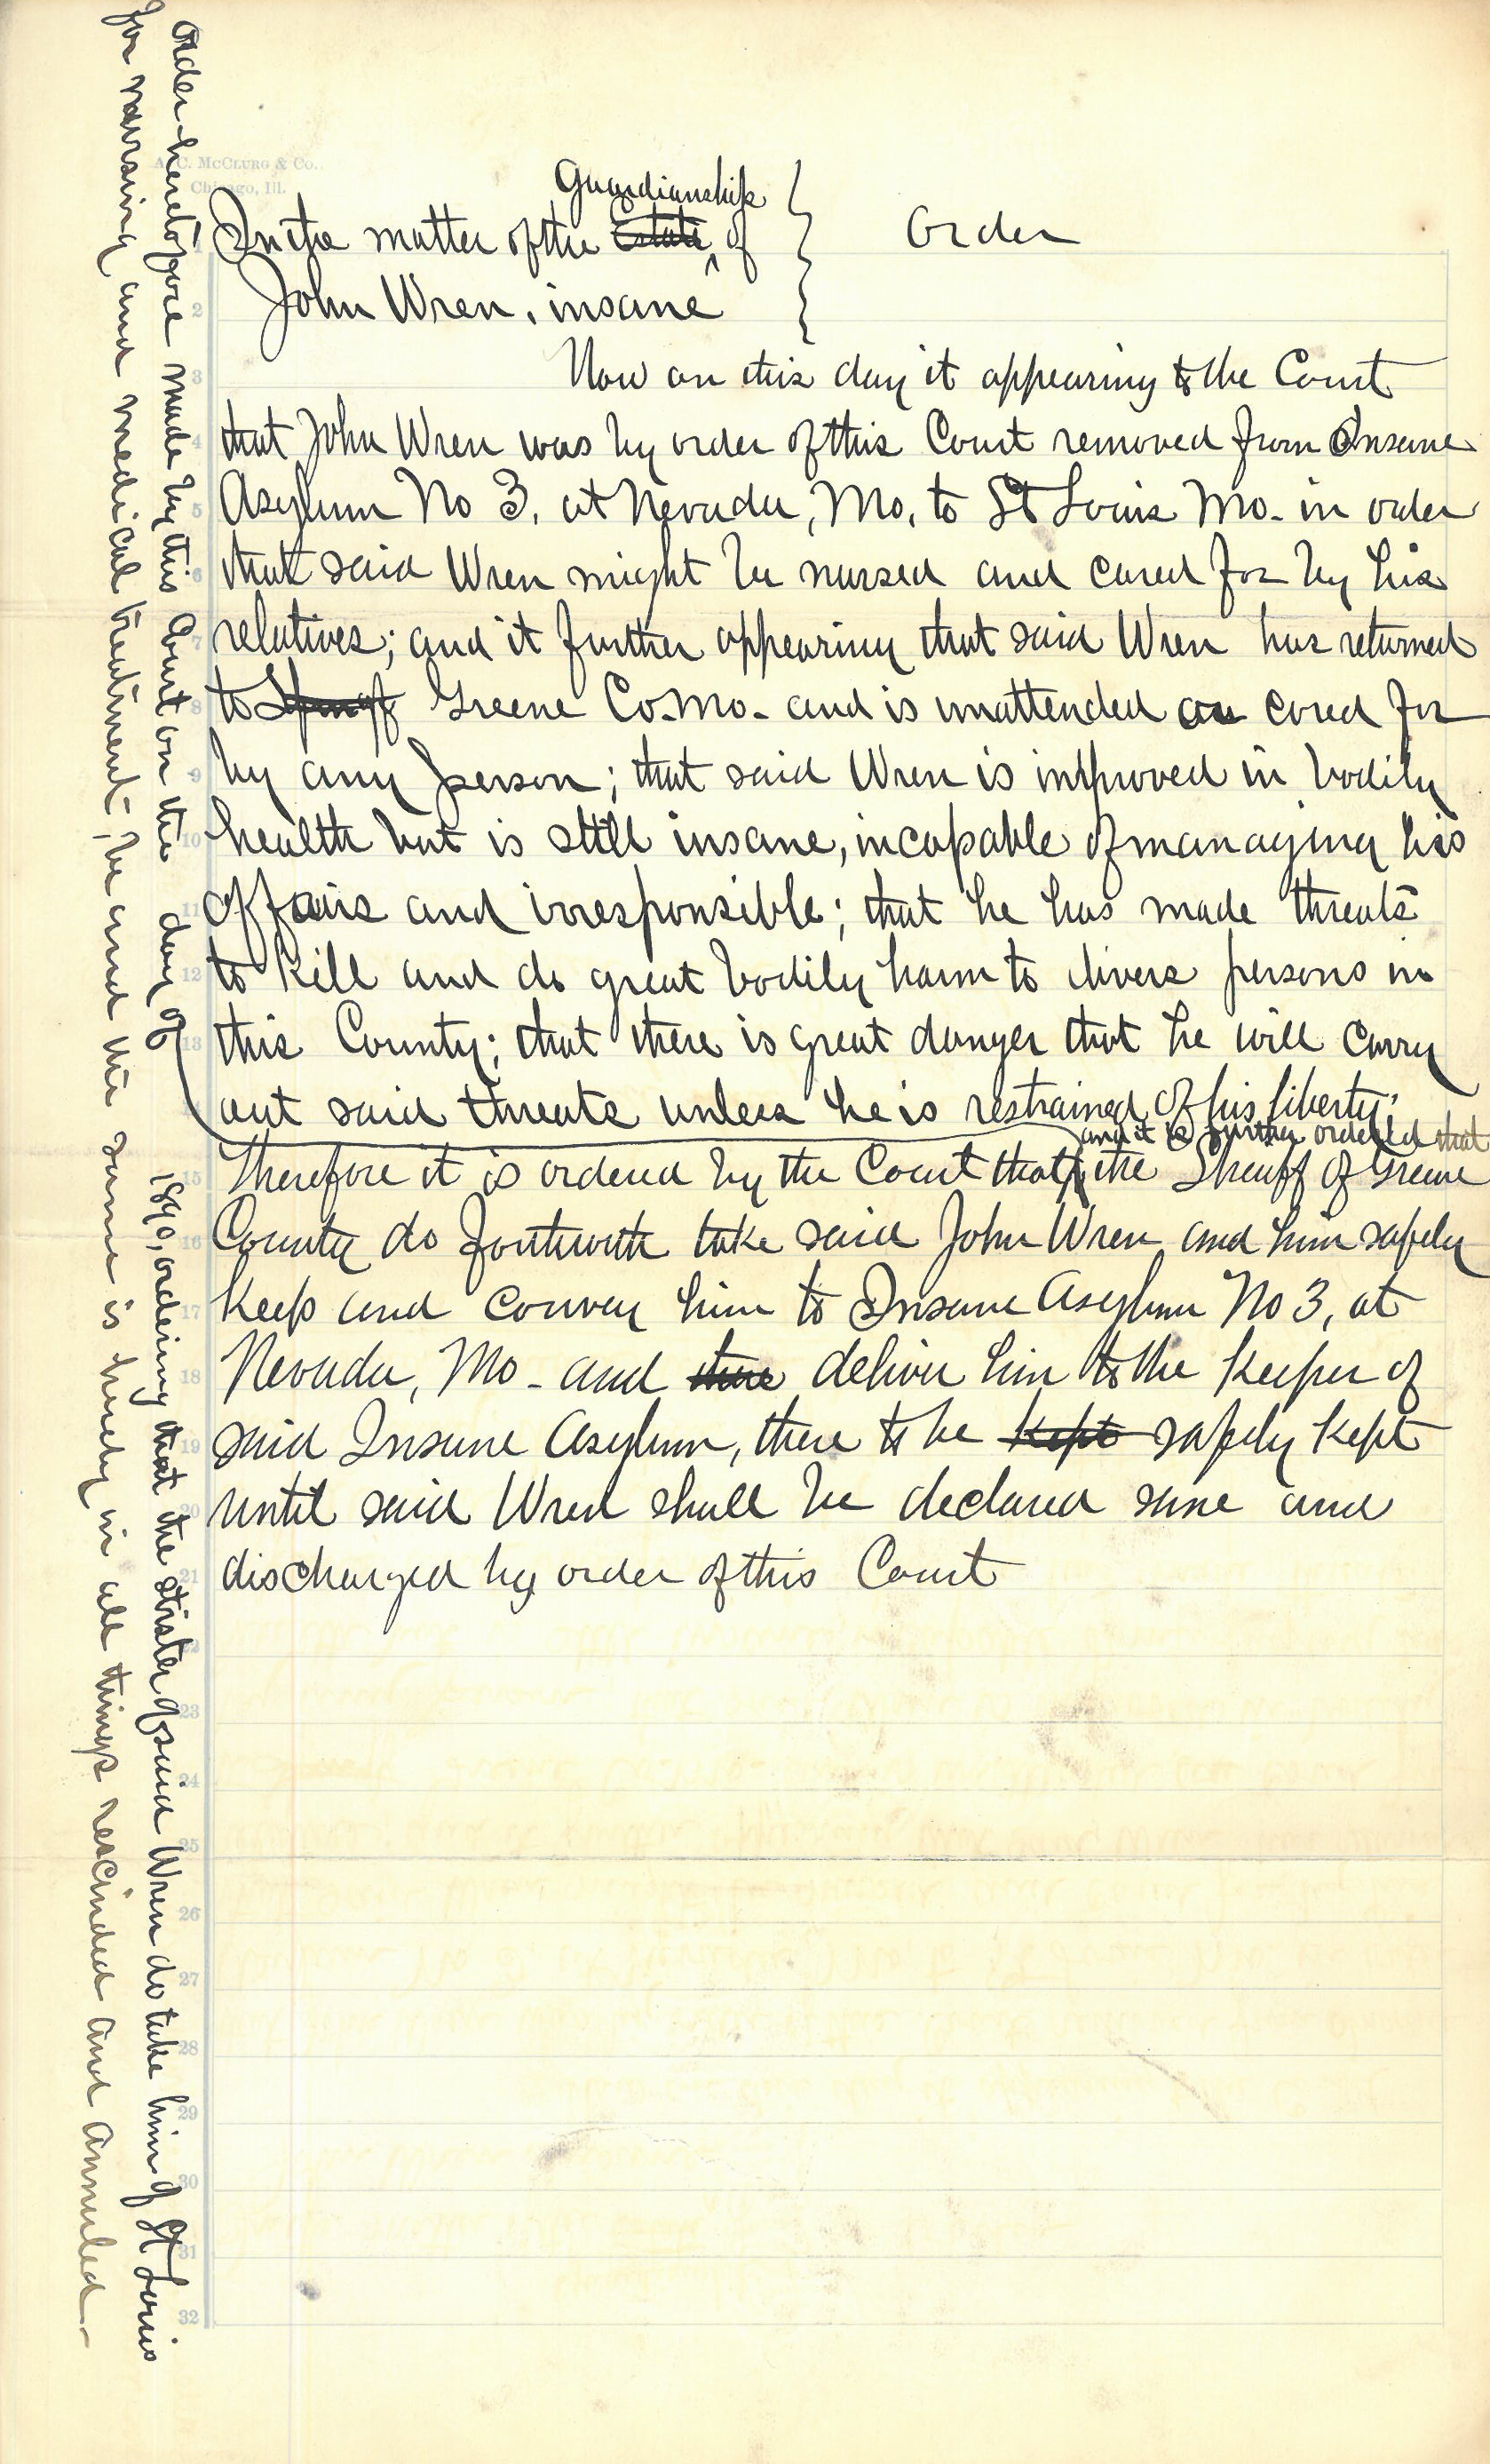 Order heretofore made by this Court on the day of 1890, ordering that the sister of said Wren do take him of St Louis
for nursing and medical treatment, be and the same is hereby in all things rescinded and annuled.
A. C. McClurg & Co.
Chicago, Ill.
Guardianship
In the matter of the Estate of
Order
John Wren, insane
Now on this day it appearing to the Court
that John Wren was by order of this Court removed from Insane
Asylum No 3, at Nevada, Mo, to St Louis Mo. in order
that said Wren might be nursed and cared for by his
relatives; and it further appearing that said Wren has returned
to Springf Greene Co. Mo. and is unattended or cared for
by any person; that said Wren is improved in bodily
health but is still insane, incapable of managing his
affairs and irresponsible; that he has made threats
to kill and do great bodily harm to divers persons in
this County; that there is great danger that he will carry
out said threats unless he is restrained of his liberty;
and it is further ordered that
Therefore it is ordered by the Court that the Sheriff of Greene
County do forthwith take said John Wren and him safely
keep and convey him to Insane Asylum No 3, at
Nevada, Mo - and there deliver him to the keeper of
said Insane Asylum, there to be kept safely kept
until said Wren shall be declared sane and
discharged by order of this Court
1
2
3
4
5
6
7
8
9
10
11
12
13
14
15
16
17
18
19
20
21
22
23
24
25
26
27
28
29
30
31
32